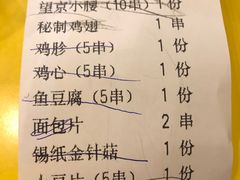 望京小腰（10串）1份
秘制鸡翅 1串
鸡胗（5串） 1份
鸡心（5串） 1份
鱼豆腐（5串） 1份
面包片 2串
锡纸金针菇 1份
土豆片（5串） 1份